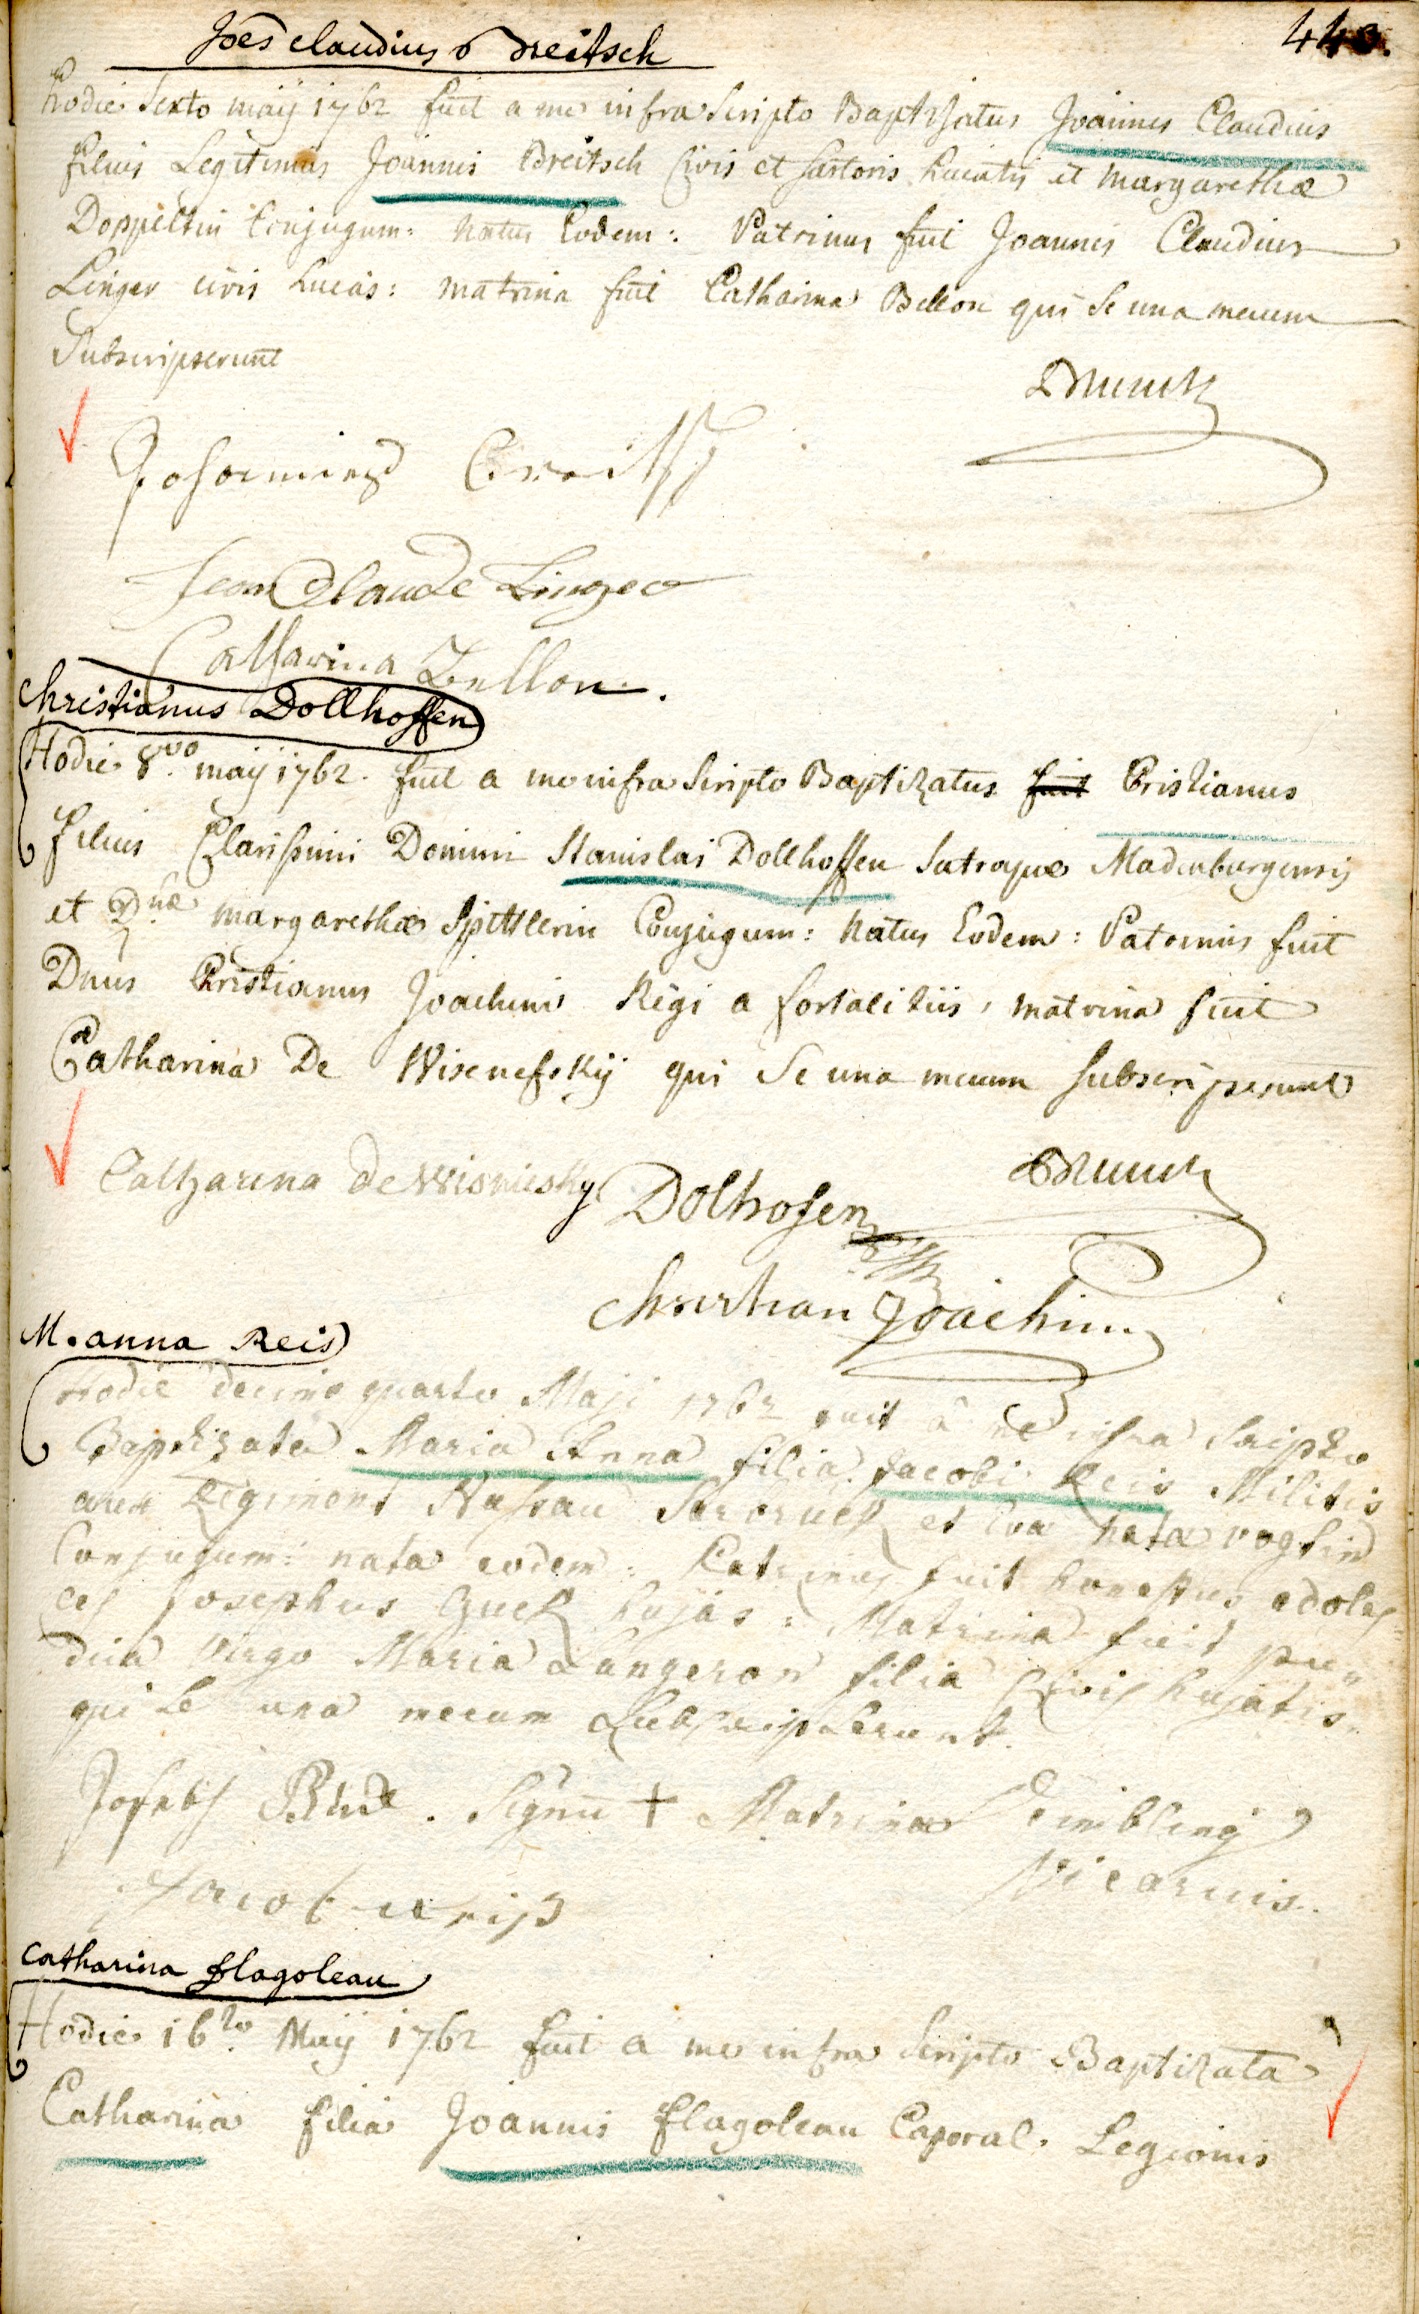 443.
Joes claudius Breitsch
hodie Sexto maÿ 1762 fuit a me infra Scripto Baptizatus Joannes Claudius
filius Legitimus Joannis Breitsch Civis et Sartoris hueatis et margarethæ
Doppeltin Conjugum: natus Eodem: Patrinus fuit Joannes Claudius
Linger civis hueas: matrina fuit Catharina Bellon qui Se una mecum
Subscripserunt
Johannes Breitsch
Jean Claude Linger
Catharina Bellon.
christianus Dollhoffen
Hodie 8vo. maÿ 1762. fuit a me infra Scripto Baptizatus fuit Cristianus
filius Clarissimi Domini Stanislai Dollhoffen Satrapæ Madenburgensis
et Dnæ margarethæ Spittlerin Conjugum: natus Eodem: Patrinus fuit
Dnus Christianus Joachim Regi a fortalitiis, matrina fuit
Catharina De Wisenefskÿ qui Se una mecum subscripserunt
Catharina de Wisniesky Dolhofen
Christian Joachim
M. anna Reis
Hodie decimo quarto Maji 1762 fuit à me infra Scripto
Baptizata Maria Anna filia Jacobi Reis Militis
aux Regiment Nassau Sarbruck et Eva nata vogtin
Conjugum: nata eodem: Patrinus fuit honestus adoles
ces Josephus Guek hujas: Matrina fuit pu-
dica Virgo Maria Langeron filia Civis hujatis
qui Se una mecum Subscripserunt.
Joseph . Signu + Matrinæ
Vicarius.
Jacob reiß
catharina flagoleau
Hodie 16to. Maÿ 1762 fuit a me infra Scripto Baptizata
Catharina filia Joannis flagoleau Caporal. Legionis